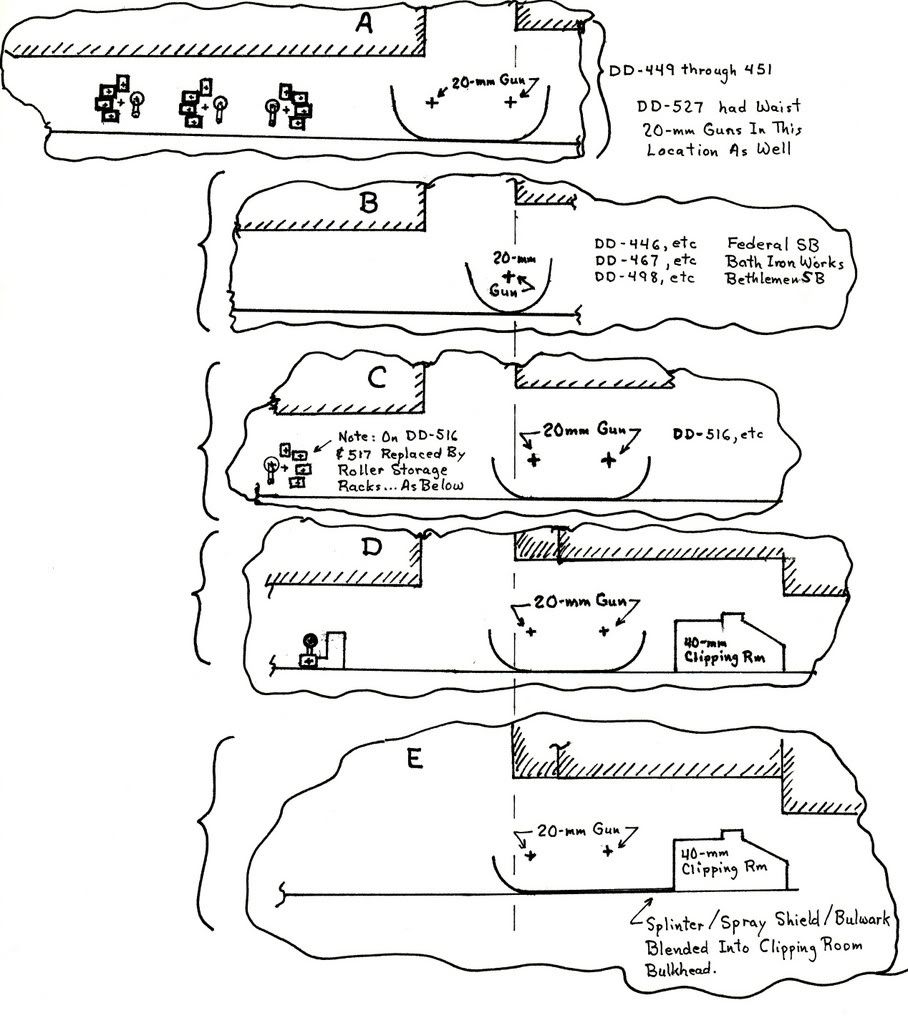 A
20-mm Gun
DD-449 through 451
DD-527 had Waist
20-mm Guns In This
Location As Well
B
20-mm
Gun
DD-446, etc Federal SB
DD-467, etc Bath Iron Works
DD-498, etc Bethlemen SB
C
Note: On DD-516
& 517 Replaced By
Roller Storage
Racks... As Below
20mm Gun
DD-516, etc
D
20-mm Gun
40-mm
Clipping Rm
E
20-mm Gun
40-mm
Clipping Rm
Splinter/Spray Shield/Bulwark
Blended Into Clipping Room
Bulkhead.